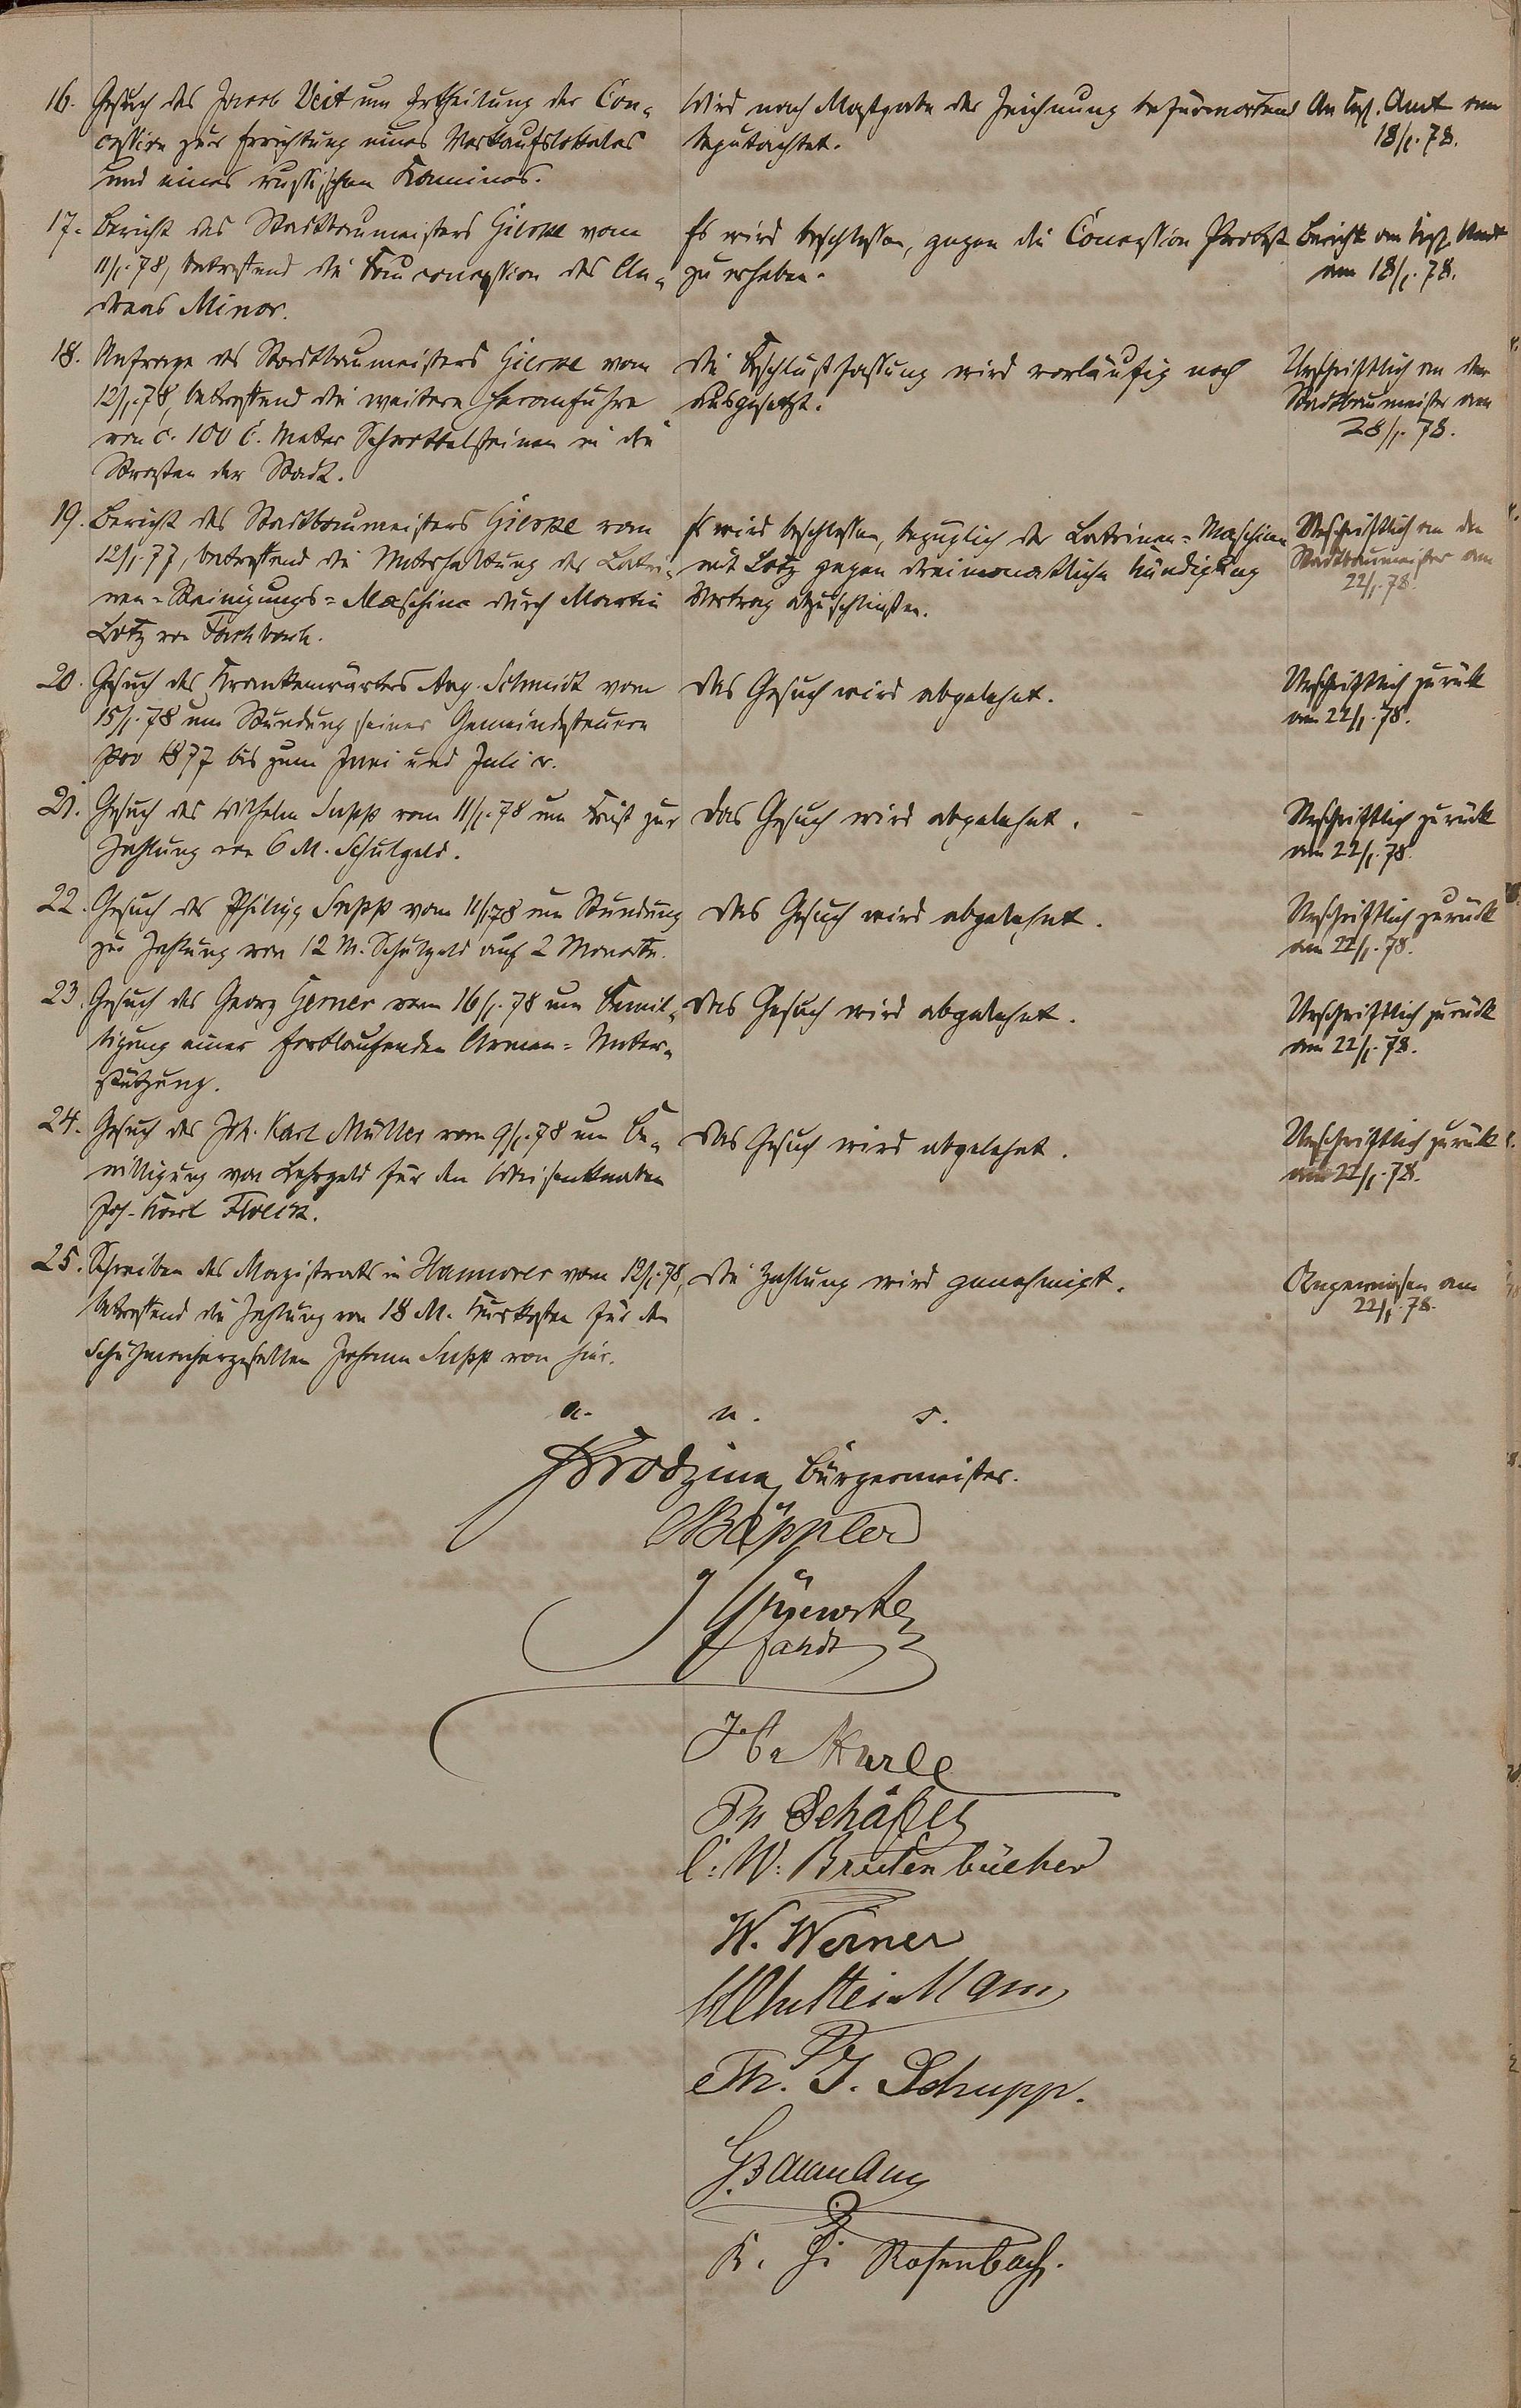 16. Gesuch des Jacob Veit um Ertheilung der Con-
cession zur Errichtung eines Verkaufslokales
und eines russischen Kamines.
Wird nach Maßgabe der Zeichnung befürwortend
begutachtet.
An Kgl. Amt am
18/1. 78.
17. Bericht des Stadtbaumeisters Gierke vom
11/1. 78, betreffend die Bauconcession des An-
dreas Minor.
Es wird beschlossen, gegen die Concession Protest
zu erheben.
Bericht an Kgl. Amt
am 18/1. 78.
18. Anfrage des Stadtbaumeisters Gierke vom
12/1. 78, betreffend die weitere Heranfuhre
von c. 100 C. Meter Schrottelsteinen in die
Straßen der Stadt.
Die Beschlußfassung wird vorläufig noch
ausgesetzt.
Urschriftlich an den
Stadtbaumeister am
28/1. 78.
19. Bericht des Stadtbaumeisters Gierke vom
12/1. 77, betreffend die Unterhaltung der Latri-
nen-Reinigungs-Maschine durch Martin
Lotz von Fachbach.
Es wird beschlossen, bezüglich der Latrinen-Maschine
mit Lotz gegen dreimonatliche Kündigung
Vertrag abzuschließen.
Urschriftlich an den
Stadtbaumeister am
22/1. 78.
20. Gesuch des Krankenwärters Aug. Schmidt vom
15/1. 78 um Stundung seiner Gemeindesteuern
pro 1877 bis zum Juni und Juli cr.
Das Gesuch wird abgelehnt.
Urschriftlich zurück
am 22/1. 78.
21. Gesuch des Wilhelm Supp vom 11/1. 78 um Frist zur
Zahlung von 6 M. Schulgeld.
Das Gesuch wird abgelehnt.
Urschriftlich zurück
am 22/1. 78.
22. Gesuch des Philipp Supp vom 11/1 78 um Stundung
zur Zahlung von 12 M. Schulgeld auf 2 Monate.
Das Gesuch wird abgelehnt.
Urschriftlich zurück
am 22/1. 78.
23. Gesuch des Georg Gemer vom 16/1. 78 um Bewil-
ligung einer fortlaufenden Armen-Unter-
stützung.
Das Gesuch wird abgelehnt.
Urschriftlich zurück
am 22/1. 78.
24. Gesuch des Joh. Karl Müller vom 9/1. 78 um Be-
willigung von Lehrgeld für den Waisenknaben
Joh. Karl Flöck.
Das Gesuch wird abgelehnt.
Urschriftlich zurück
am 22/1. 78.
25. Schreiben des Magistrats in Hannover vom 12/1. 78,
betreffend die Zahlung von 18 M. Kurkosten für den
Schuhmachergesellen Johann Supp von hier.
Die Zahlung wird genehmigt.
Angewiesen am
22/1. 78.
a. u. s.
Bürgermeister.
Fandt
Ph Schäfer
C. W. Breitenbücher
W. Werner
Th. J. Schupp.
G. Baumann
K. Rosenbach.